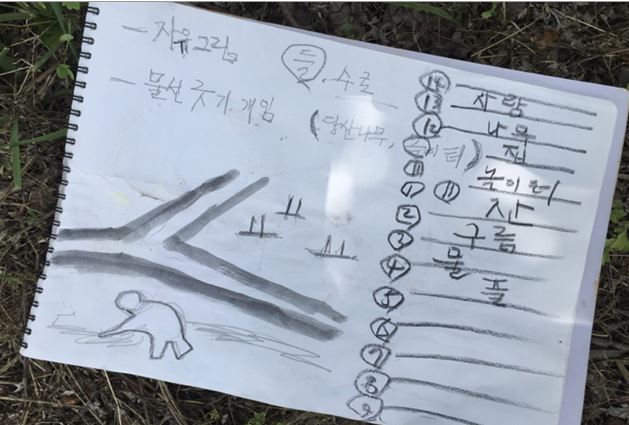 - 자유그림
- 물선 긋기 게임
들, 수로
(당산나무, 놀이터)
사람
나무
집
⑪ 놀이터
산
구름
물
풀
①
②
③
④
⑤
⑥
⑦
⑧
⑨